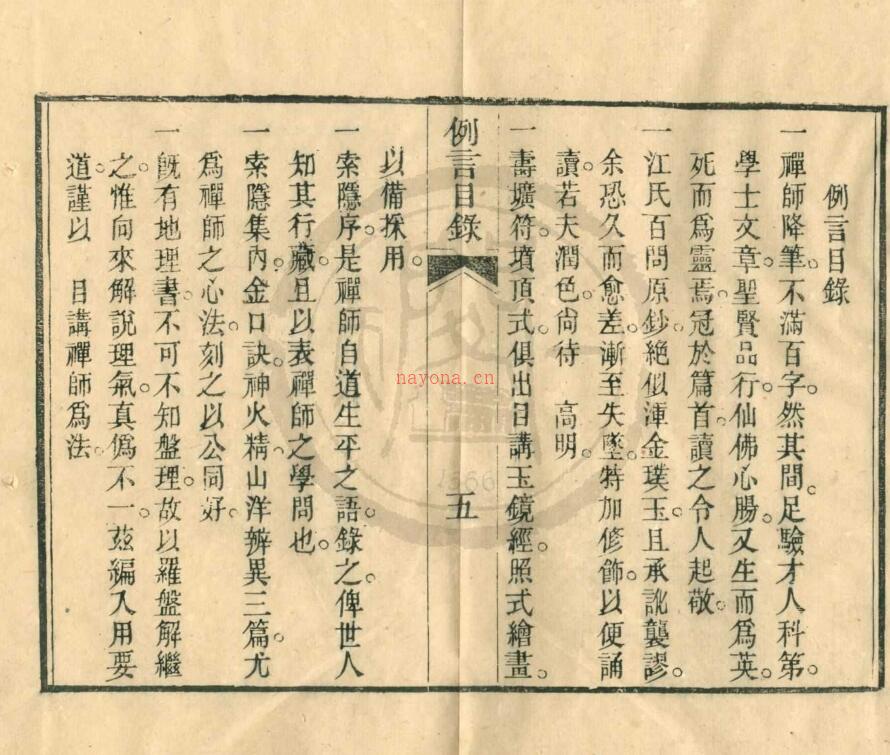 例言目錄
一禪師降筆。不滿百字。然其間。足驗才人科第。
學士文章。聖賢品行。仙佛心腸。又生而為英。
死而為靈焉。冠於篇首。讀之令人起敬。
一江氏百問原鈔。絶似渾金璞玉。且承訛襲謬。
余恐久而愈差。漸至失墜。特加修飾。以便誦
讀。若夫潤色。尙待　高明。
一壽壙符。墳頂式。俱出目講玉鏡經。照式繪畫。
例言目錄
五
以備採用。
一索隱序。是禪師自道生平之語。錄之。俾世人
知其行藏。且以表禪師之學問也。
一索隱集內。金口訣。神火精。山洋辨異三篇。尤
為禪師之心法。刻之以公同好。
一旣有地理書。不可不知盤理。故以羅盤解繼
之。惟向來解說理氣。真僞不一。茲編入用要
道。謹以　目講禪師為法。
nayona.cn
1366